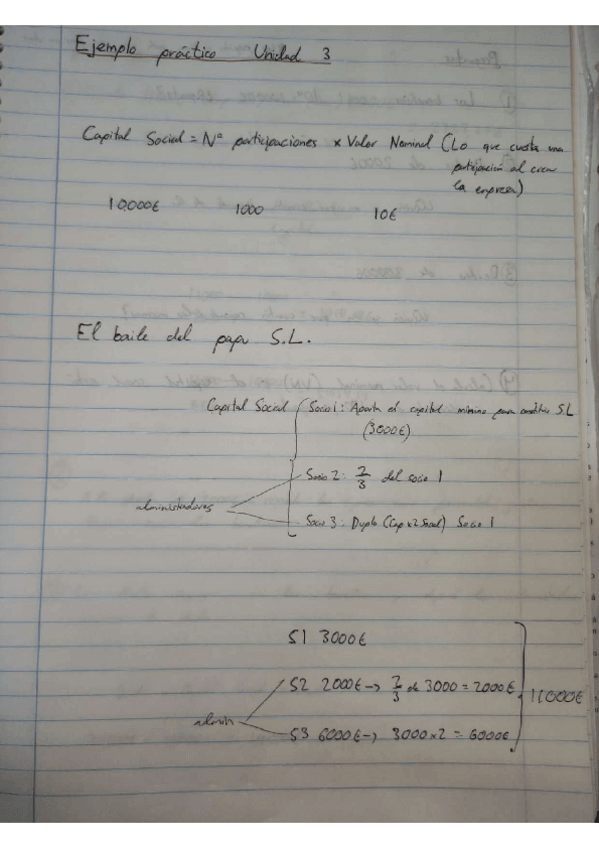 Ejemplo práctico Unidad 3
Capital Social = Nº participaciones x Valor Nominal (Lo que cuesta una
participación al crear
la empresa)
10.000€ 1000 10€
El baile del papu S.L.
Capital Social Socio 1: Aporta el capital mínimo para S.L
(3000€)
Socio 2: 2/3 del socio 1
administradores
Socio 3: Duplo (Cap x2 Social) Socio 1
S1 3000€
S2 2000€ → 2/3 de 3000 = 2000€
11000€
admin
S3 6000€ → 3000x2 = 6000€